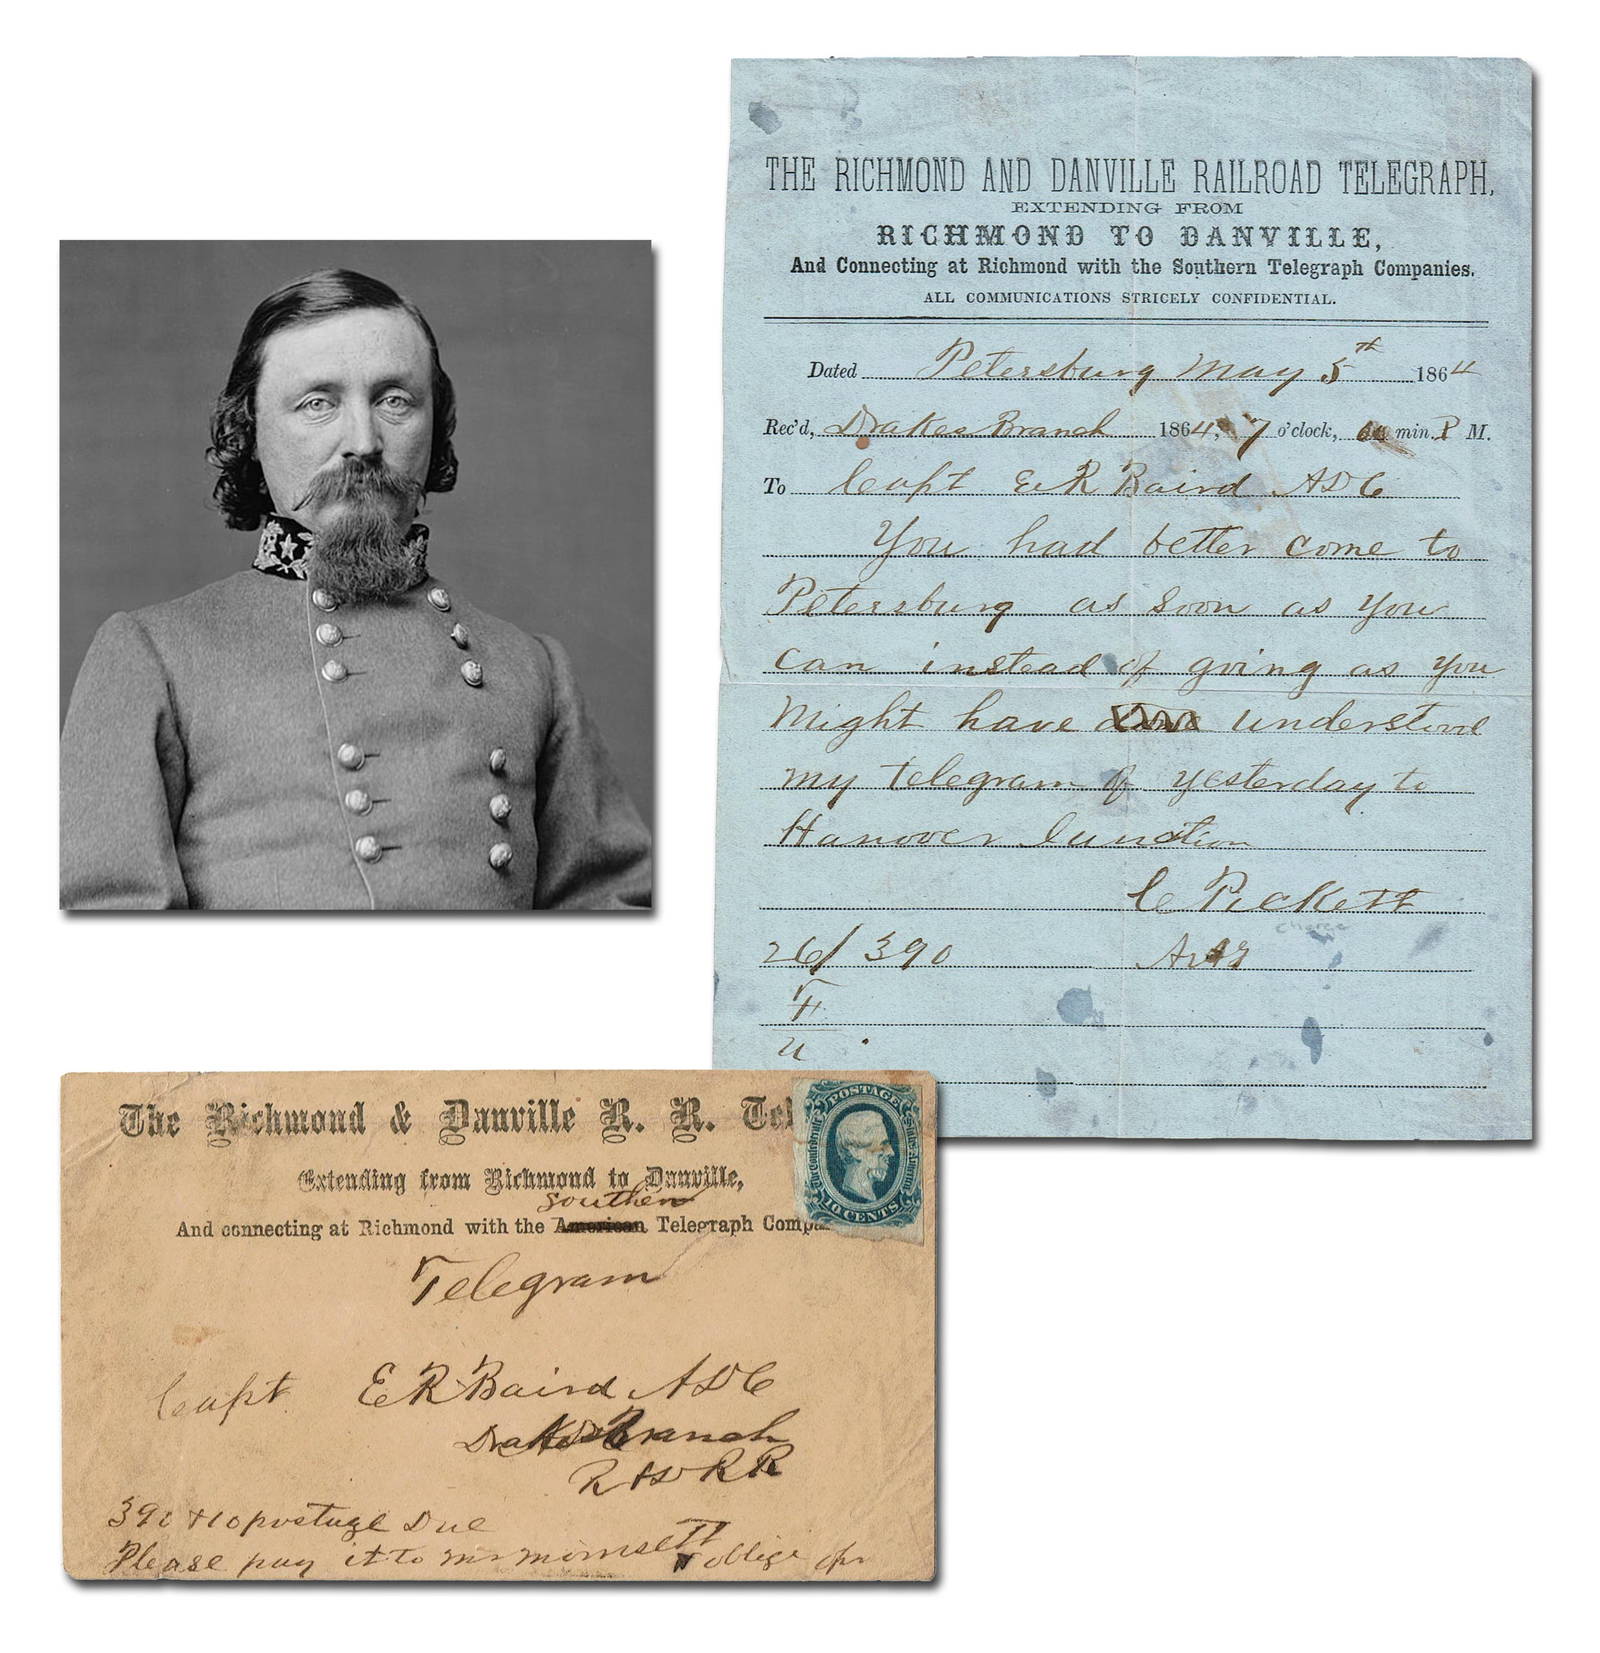 THE RICHMOND AND DANVILLE RAILROAD TELEGRAPH,
EXTENDING FROM
RICHMOND TO DANVILLE,
And Connecting at Richmond with the Southern Telegraph Companies.
ALL COMMUNICATIONS STRICELY CONFIDENTIAL.
Dated Petersburg May 5th 1864
Rec'd, Drakes Branch 1864, 7 o'clock, min. P M.
To Capt E R Baird ADC
You had better come to
Petersburg as soon as you
can instead of going as you
Might have understood
my telegram of yesterday to
Hanover Junction
C Pickett
26/ 390
The Richmond & Danville R. R. Tel
Extending from Richmond to Danville,
southern
And connecting at Richmond with the American Telegraph Compa
POSTAGE
The Confederate States of America
10 CENTS
Telegram
Capt. E R Baird ADC
Drakes Branch
R & D R R
390 + 10 postage Due
Please pay it to mr & oblige